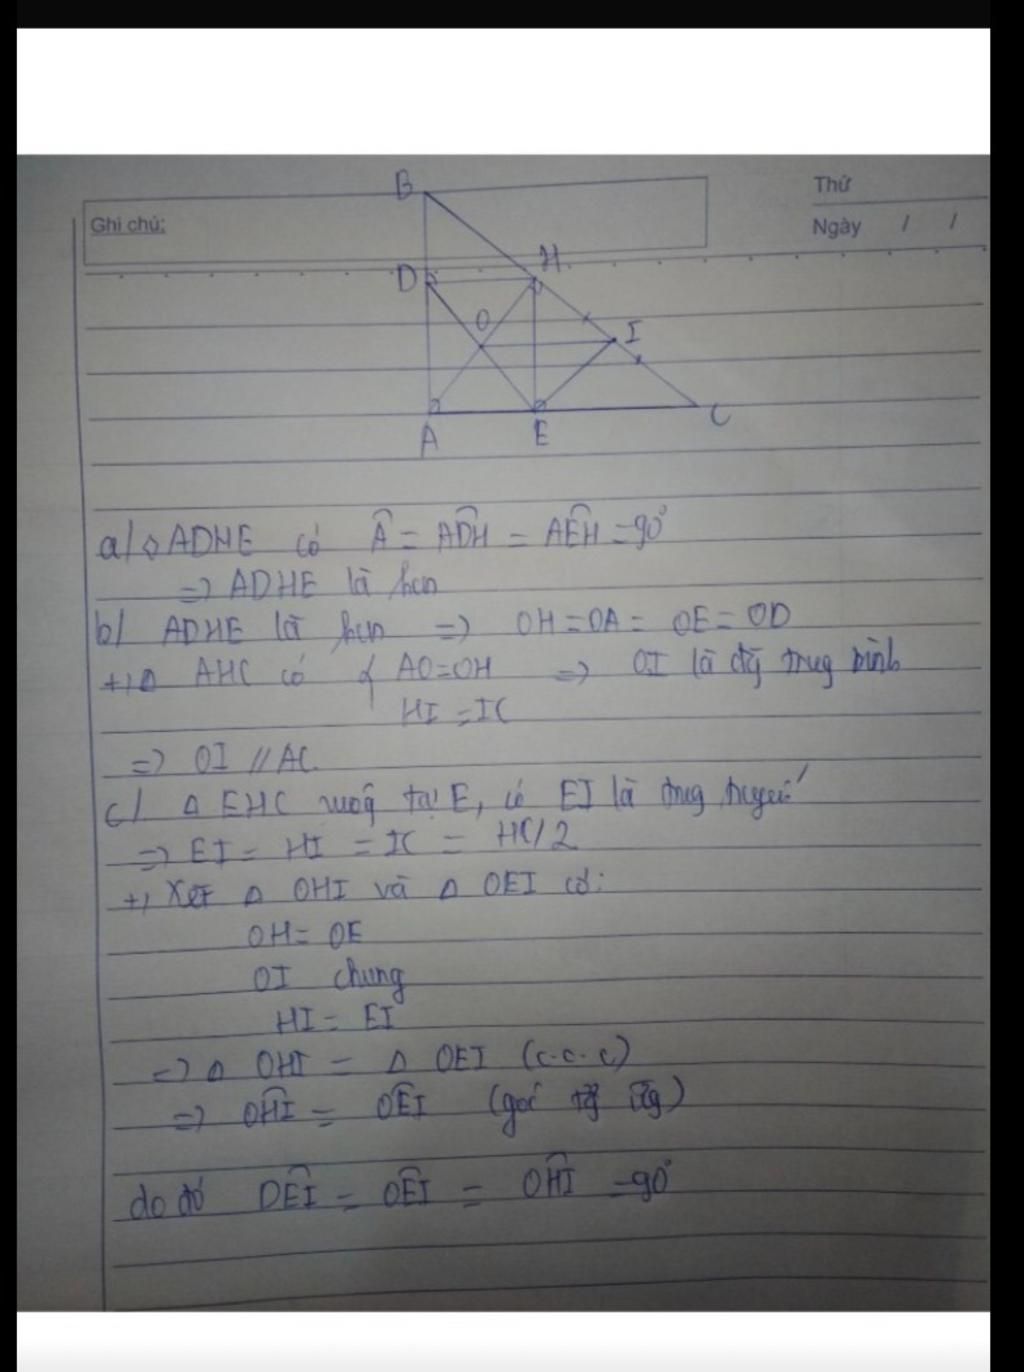 B
Thứ
Ghi chú:
Ngày / /
D
H
O
I
A
E
C
a/ ◊ ADHE có Â = ADH = AEH = 90°
=> ADHE là hcn
b/ ADHE là hcn => OH = OA = OE = OD
+, Δ AHC có { AO = OH => OI là đg trug bình
HI = IC
=> OI // AC.
c/ Δ EHC vuog tại E, có EI là trug tuyến
=> EI = HI = IC = HC/2
+, Xét Δ OHI và Δ OEI có:
OH = OE
OI chung
HI = EI
=> Δ OHI = Δ OEI (c.c.c)
=> OHI = OEI (góc tg ứg)
do đó DEI = OEI = OHI = 90°